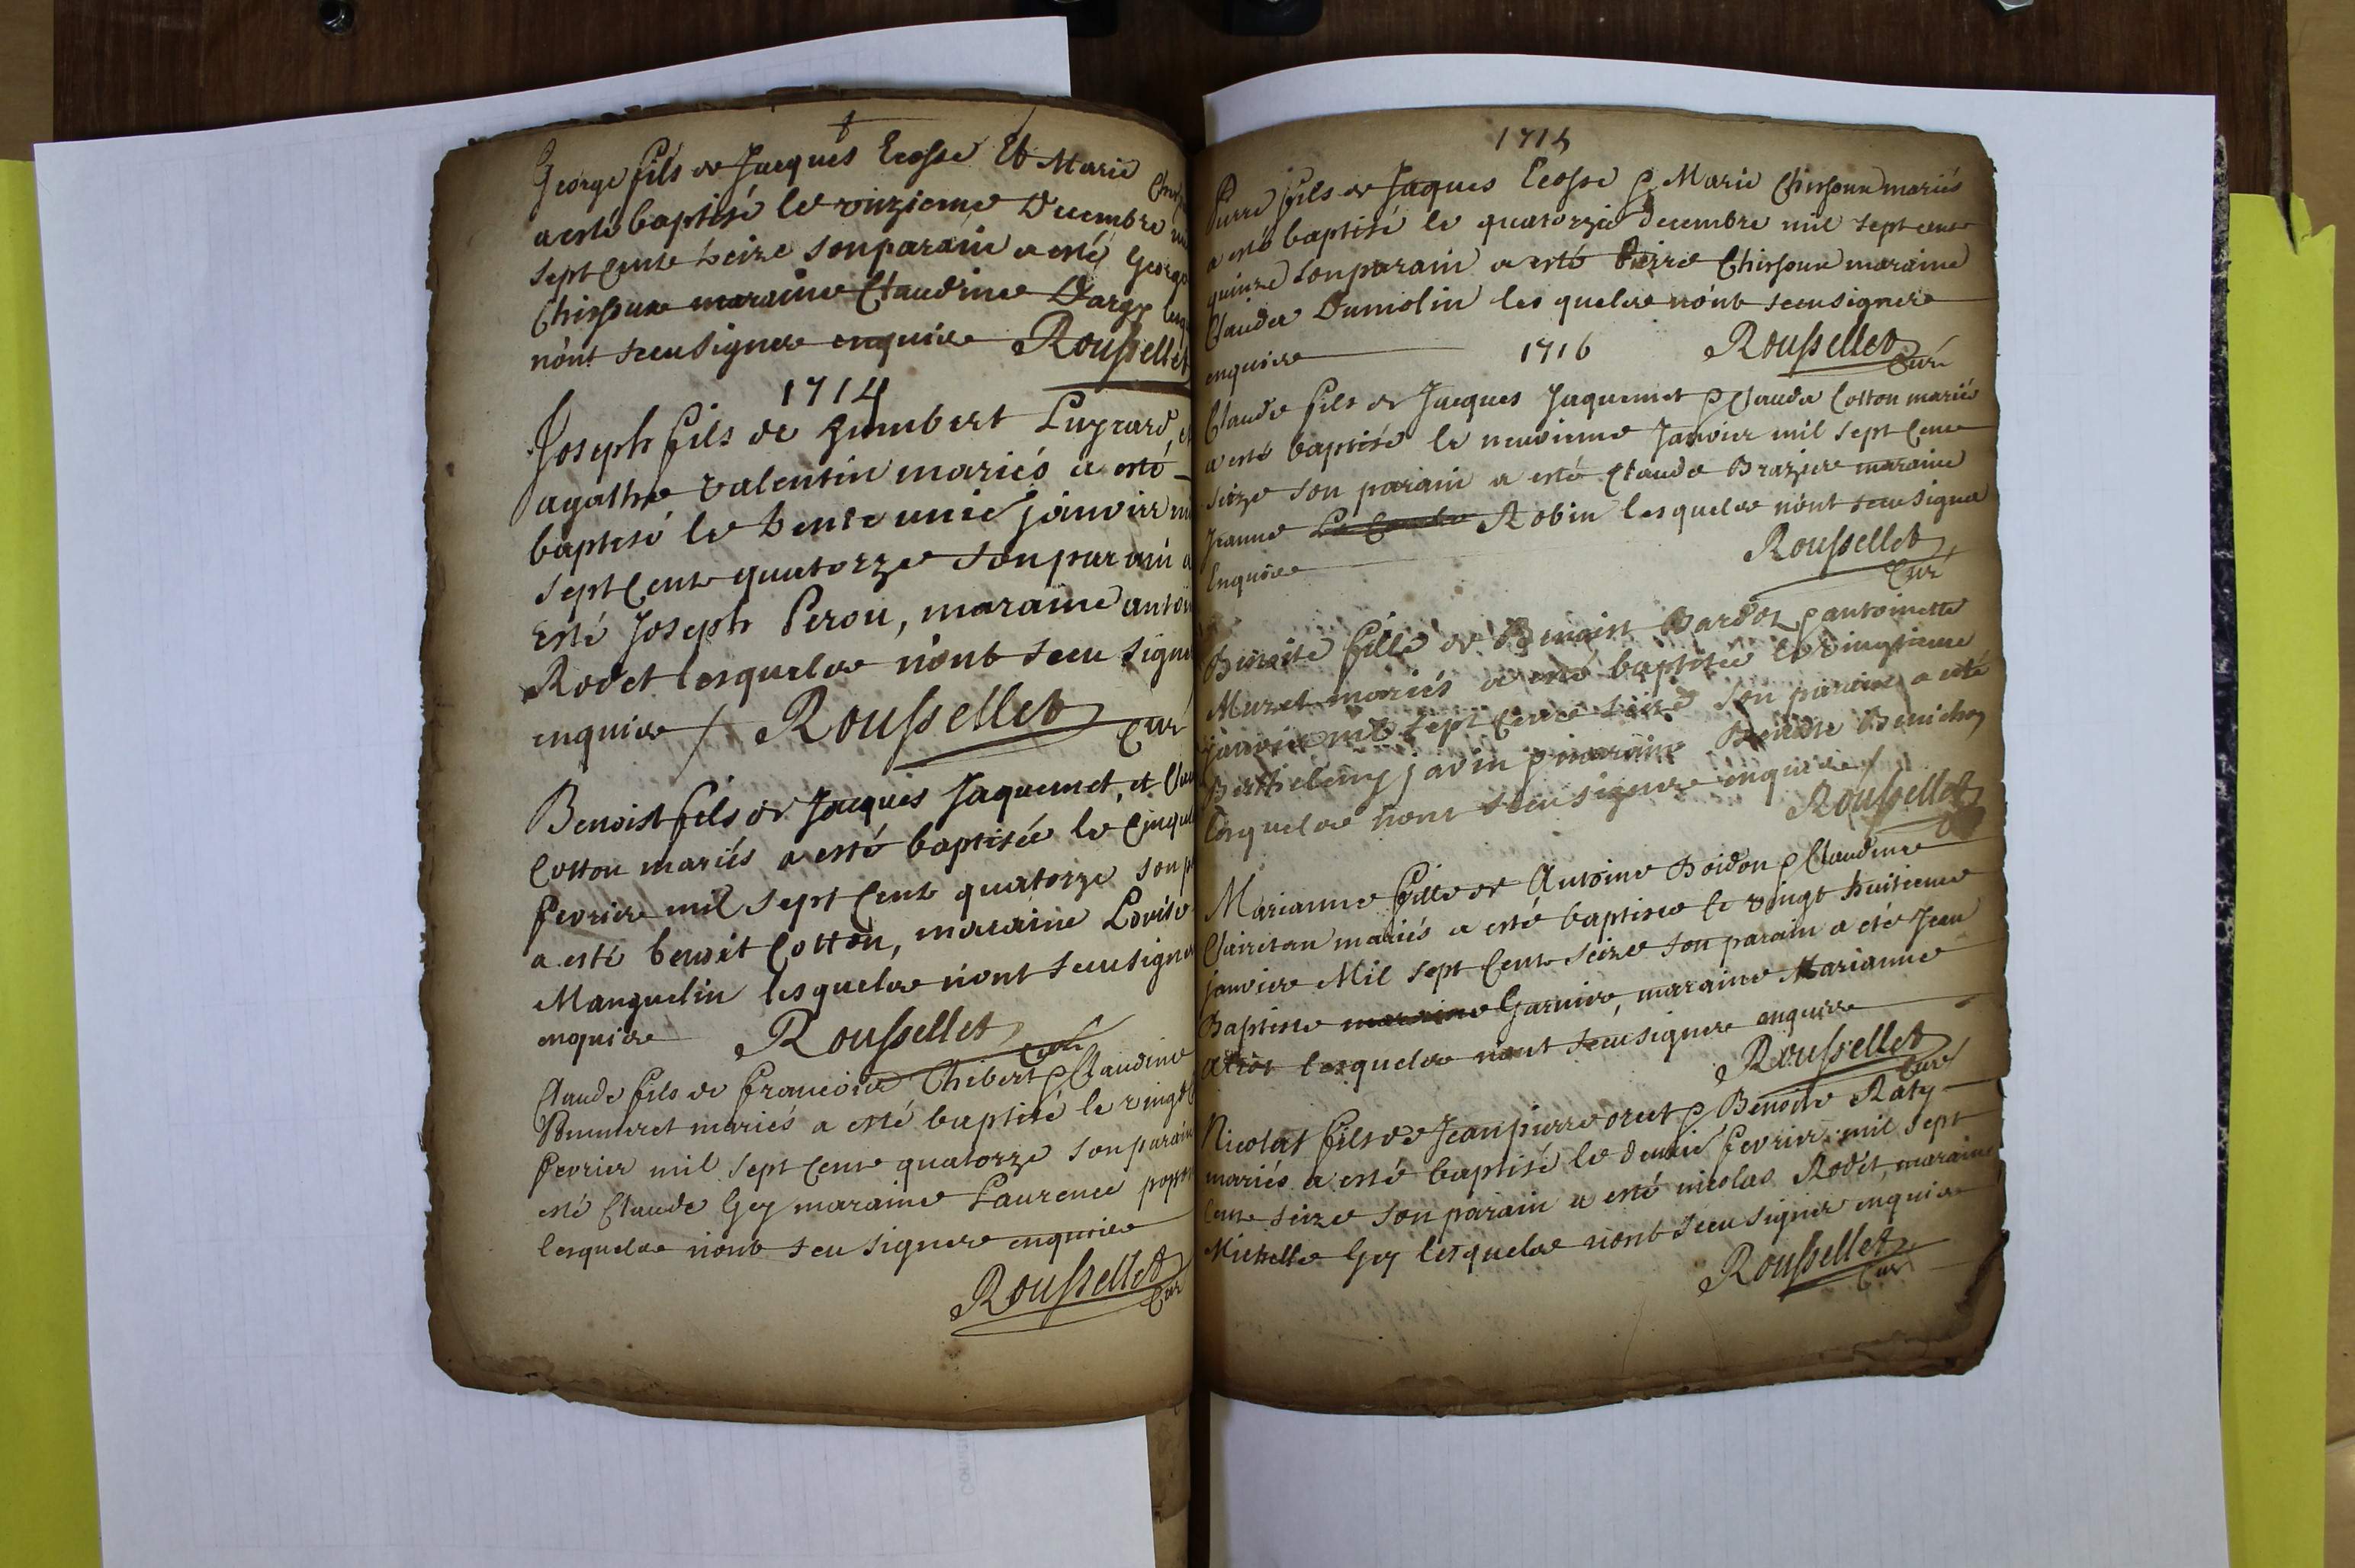 George fils de Jacques Ecosse Et Marie
a esté baptisé le onzieme Decembre
sept cents treize son parain a esté George
Chissoux maraine Claudine Dargy
n'ont sceu signer enquise Roussellet
1714
Joseph fils de Humbert Luyrard, et
agathe valentin mariés a esté
baptisé le trente unie janvier
sept cents quatorze son parain a
Esté Joseph Perou, maraine
Rodet lesquels n'ont sceu signer
enquise / Roussellet Curé
Benoist fils de Jacques Jaquemet, et
Cotton mariés a esté baptisée le
fevrier mil sept cents quatorze son
a esté benoit Cotton, maraine Lovise
Manguelin lesquels n'ont sceu signer
enquise Roussellet Curé
Claude fils de francois Thibert & Claudine
mariés a esté baptisé le vingt
fevrier mil sept cents quatorze son parain
esté Claude Gey maraine Laurence
lesquels n'ont sceu signer enquise
Roussellet
Curé
1715
Pierre fils de Jaques Ecosse & Marie Chissoux mariés
a esté baptisé le quatorzie decembre mil sept cents
quinze son parain a esté Pierre Chissoux maraine
Clauda Dumolin les quels n'ont sceu signer
enquise 1716 Roussellet Curé
Claude fils de Jacques Jaquemet & Clauda Cotton mariés
a esté baptisé le neuvieme Janvier mil sept cents
seize son parain a esté Claude Brazier maraine
Jeanne Robin lesquels n'ont sceu signer
Enquise Roussellet
Curé
Benoite fille de Benoist Bardot & antoinette
Muret mariés a esté baptisée le vingtieme
janvier mil sept cents seize son parain a esté
Barthelemy javin & maraine Benoite Benichon
lesquels n'ont sceu signer enquise /
Roussellet
Marianne fille de Antoine Boidon & Claudine
Clairetan mariés a esté baptisée le vingt huitieme
janvier Mil sept cents seize son parain a été Jean
Baptiste maraine Garnier, maraine Marianne
lesquels n'ont sceu signer enquise
Roussellet
Curé
Nicolas fils de Jean pierre oret & Benoite Raty
mariés a esté baptisé le dernie fevrier mil sept
cents seize son parain a esté nicolas Rodet, maraine
Michelle Gey lesquels n'ont sceu signer enquise
Roussellet
Curé